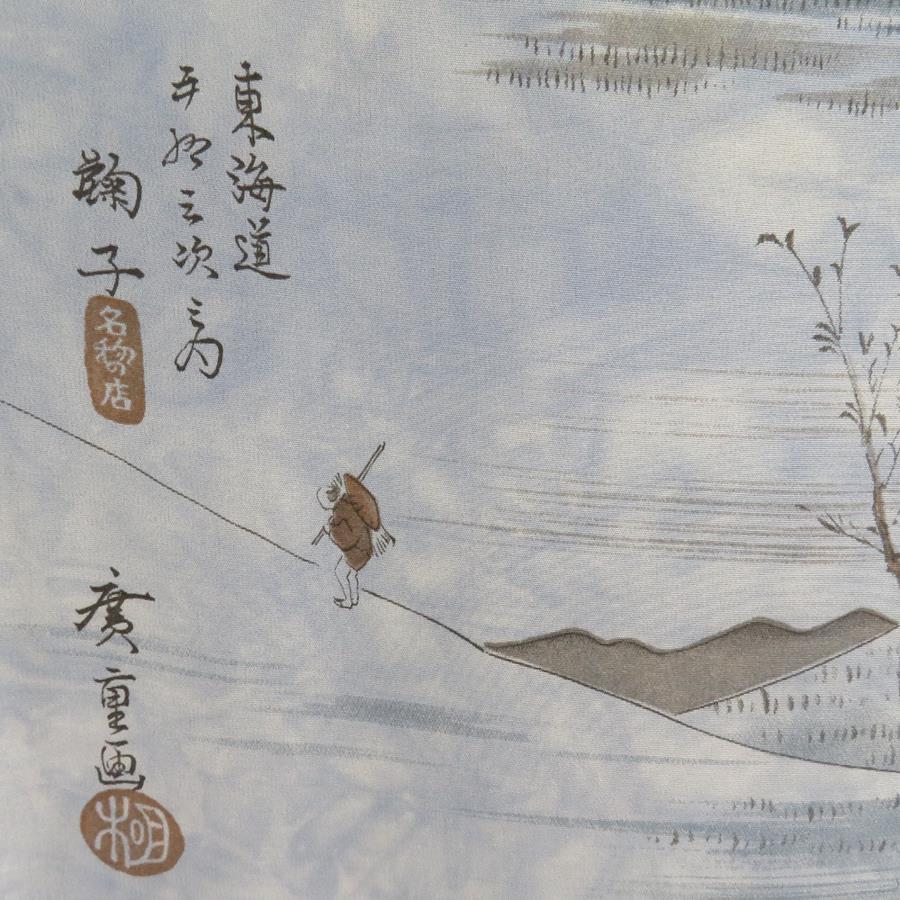 東海道
五拾三次之内
鞠子
名物店
廣重画